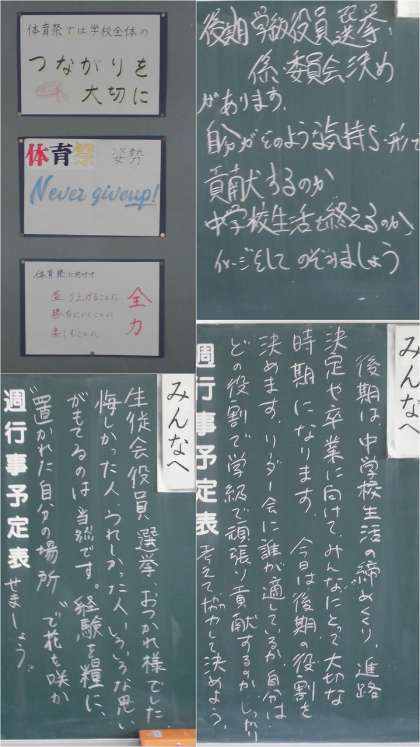 体育祭では学校全体の
つながりを
大切に
体育祭 姿勢
Never give up!
体育祭に向けて
盛り上げることに
勝ちにいくことに
楽しむことに
全力
後期学級役員選挙、
係・委員会決め
があります。
自分がどのような気持ち・形で
貢献するのか
中学校生活を終えるのか、
イメージをしてのぞみましょう
みんなへ
生徒会役員選挙、おつかれ様でした。
悔しかった人、うれしかった人、いろいろな思い
がもてるのは当然です。経験を糧に、
“置かれた自分の場所”で花を咲か
せましょう。
週行事予定表
みんなへ
後期は中学校生活の締めくくり、進路
決定や卒業に向けて、みんなにとって大切な
時期になります。今日は後期の役割を
決めます。リーダー会に誰が適しているか、自分は
どの役割で学級で頑張り貢献するのか、しっかり
考えて協力して決めよう。
週行事予定表